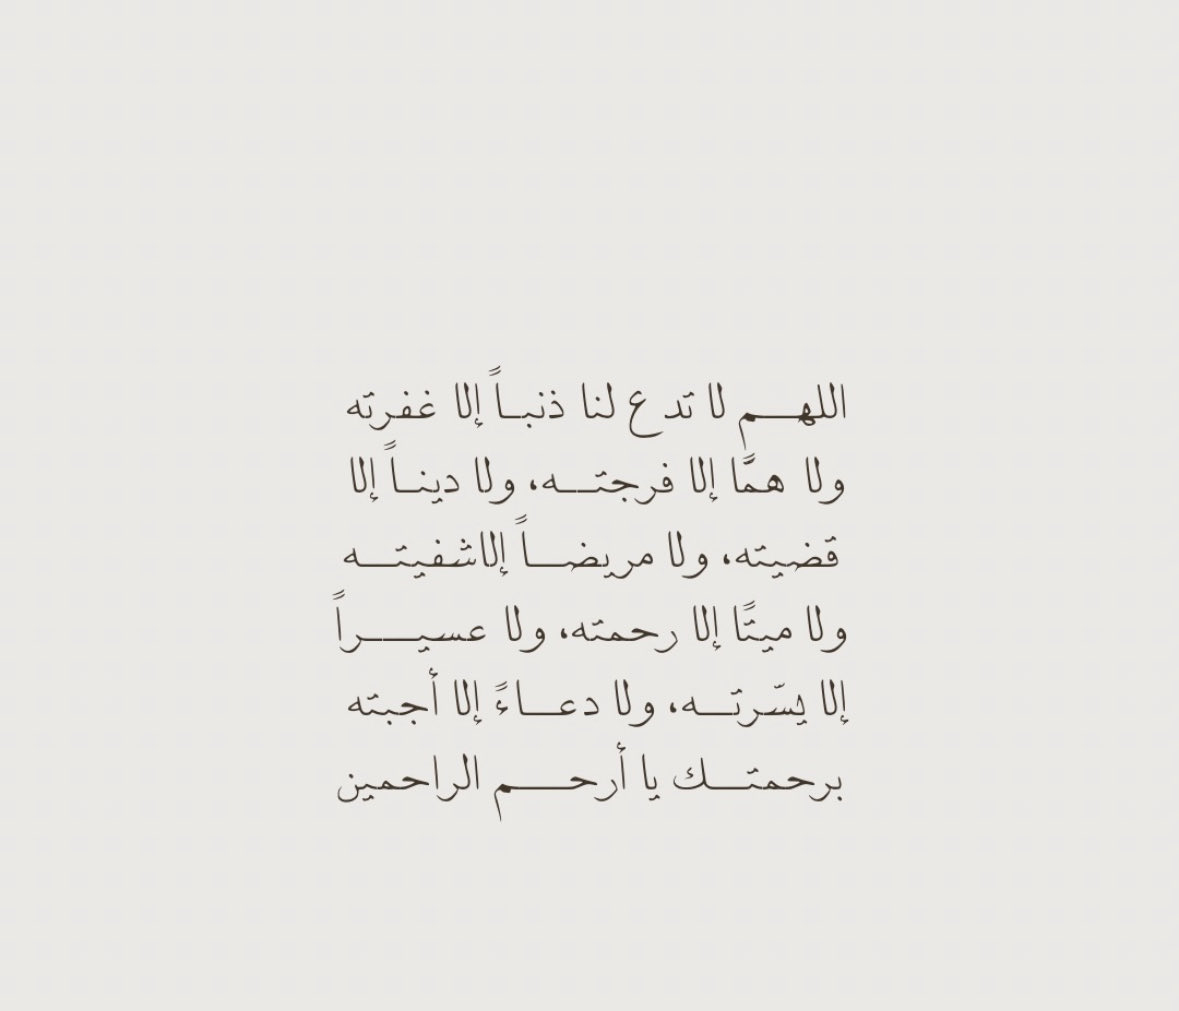 اللهـــم لا تدع لنا ذنبـاً إلا غفرته
ولا همًّا إلا فرجتـــه، ولا دينـاً إلا
قضيته، ولا مريضـــاً إلاشفيتـــه
ولا ميتًا إلا رحمته، ولا عسيـــراً
إلا يسّرتـــه، ولا دعـــاءً إلا أجبته
برحمتـــك يا أرحـــم الراحمين